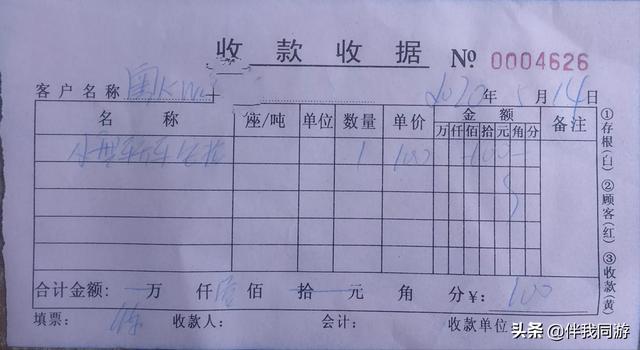 收款收据 № 0004626
客户名称 2020年5月14日
名称 座/吨 单位 数量 单价 金额 备注
万 仟 佰 拾 元 角 分
1 100 100
合计金额: 万 仟壹佰 拾 元 角 分¥: 100
填票: 收款人: 会计: 收款单位
①存根(白) ②顾客(红) ③收款(黄)
头条 @伴我同游